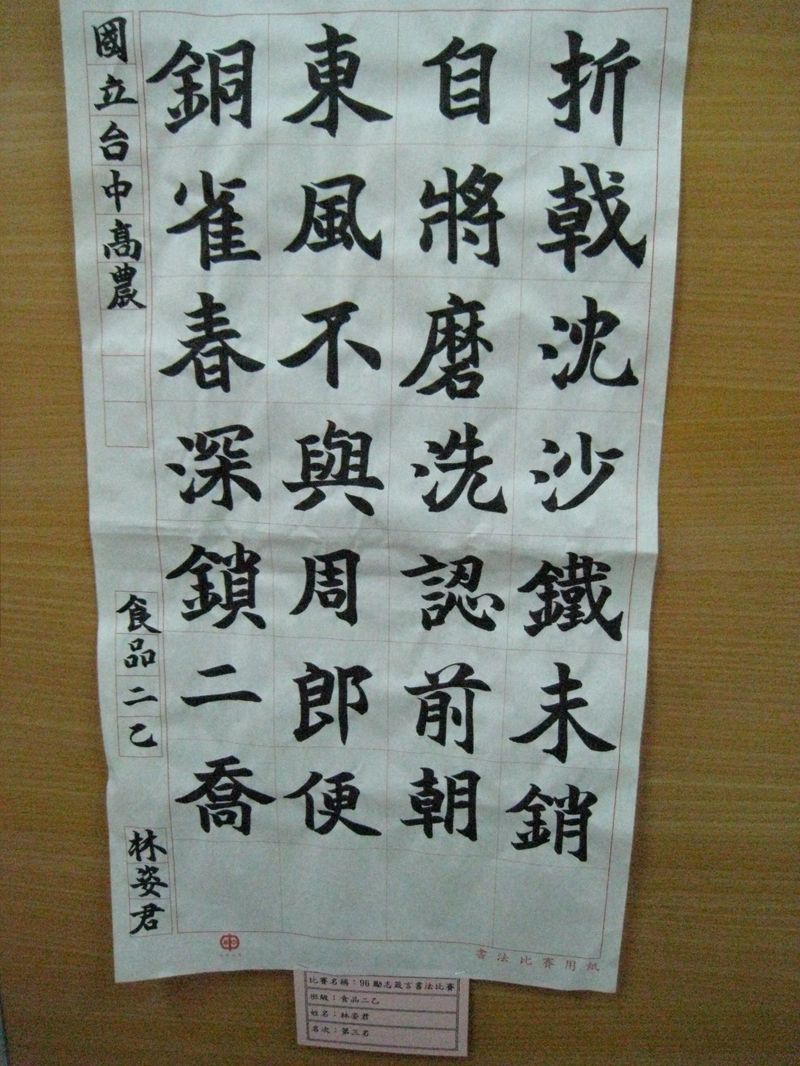 折戟沈沙鐵未銷
自將磨洗認前朝
東風不與周郎便
銅雀春深鎖二喬
國立台中高農
食品二乙
林姿君
書法比賽用紙
比賽名稱：96勵志箴言書法比賽
班級：食品二乙
姓名：林姿君
名次：第三名